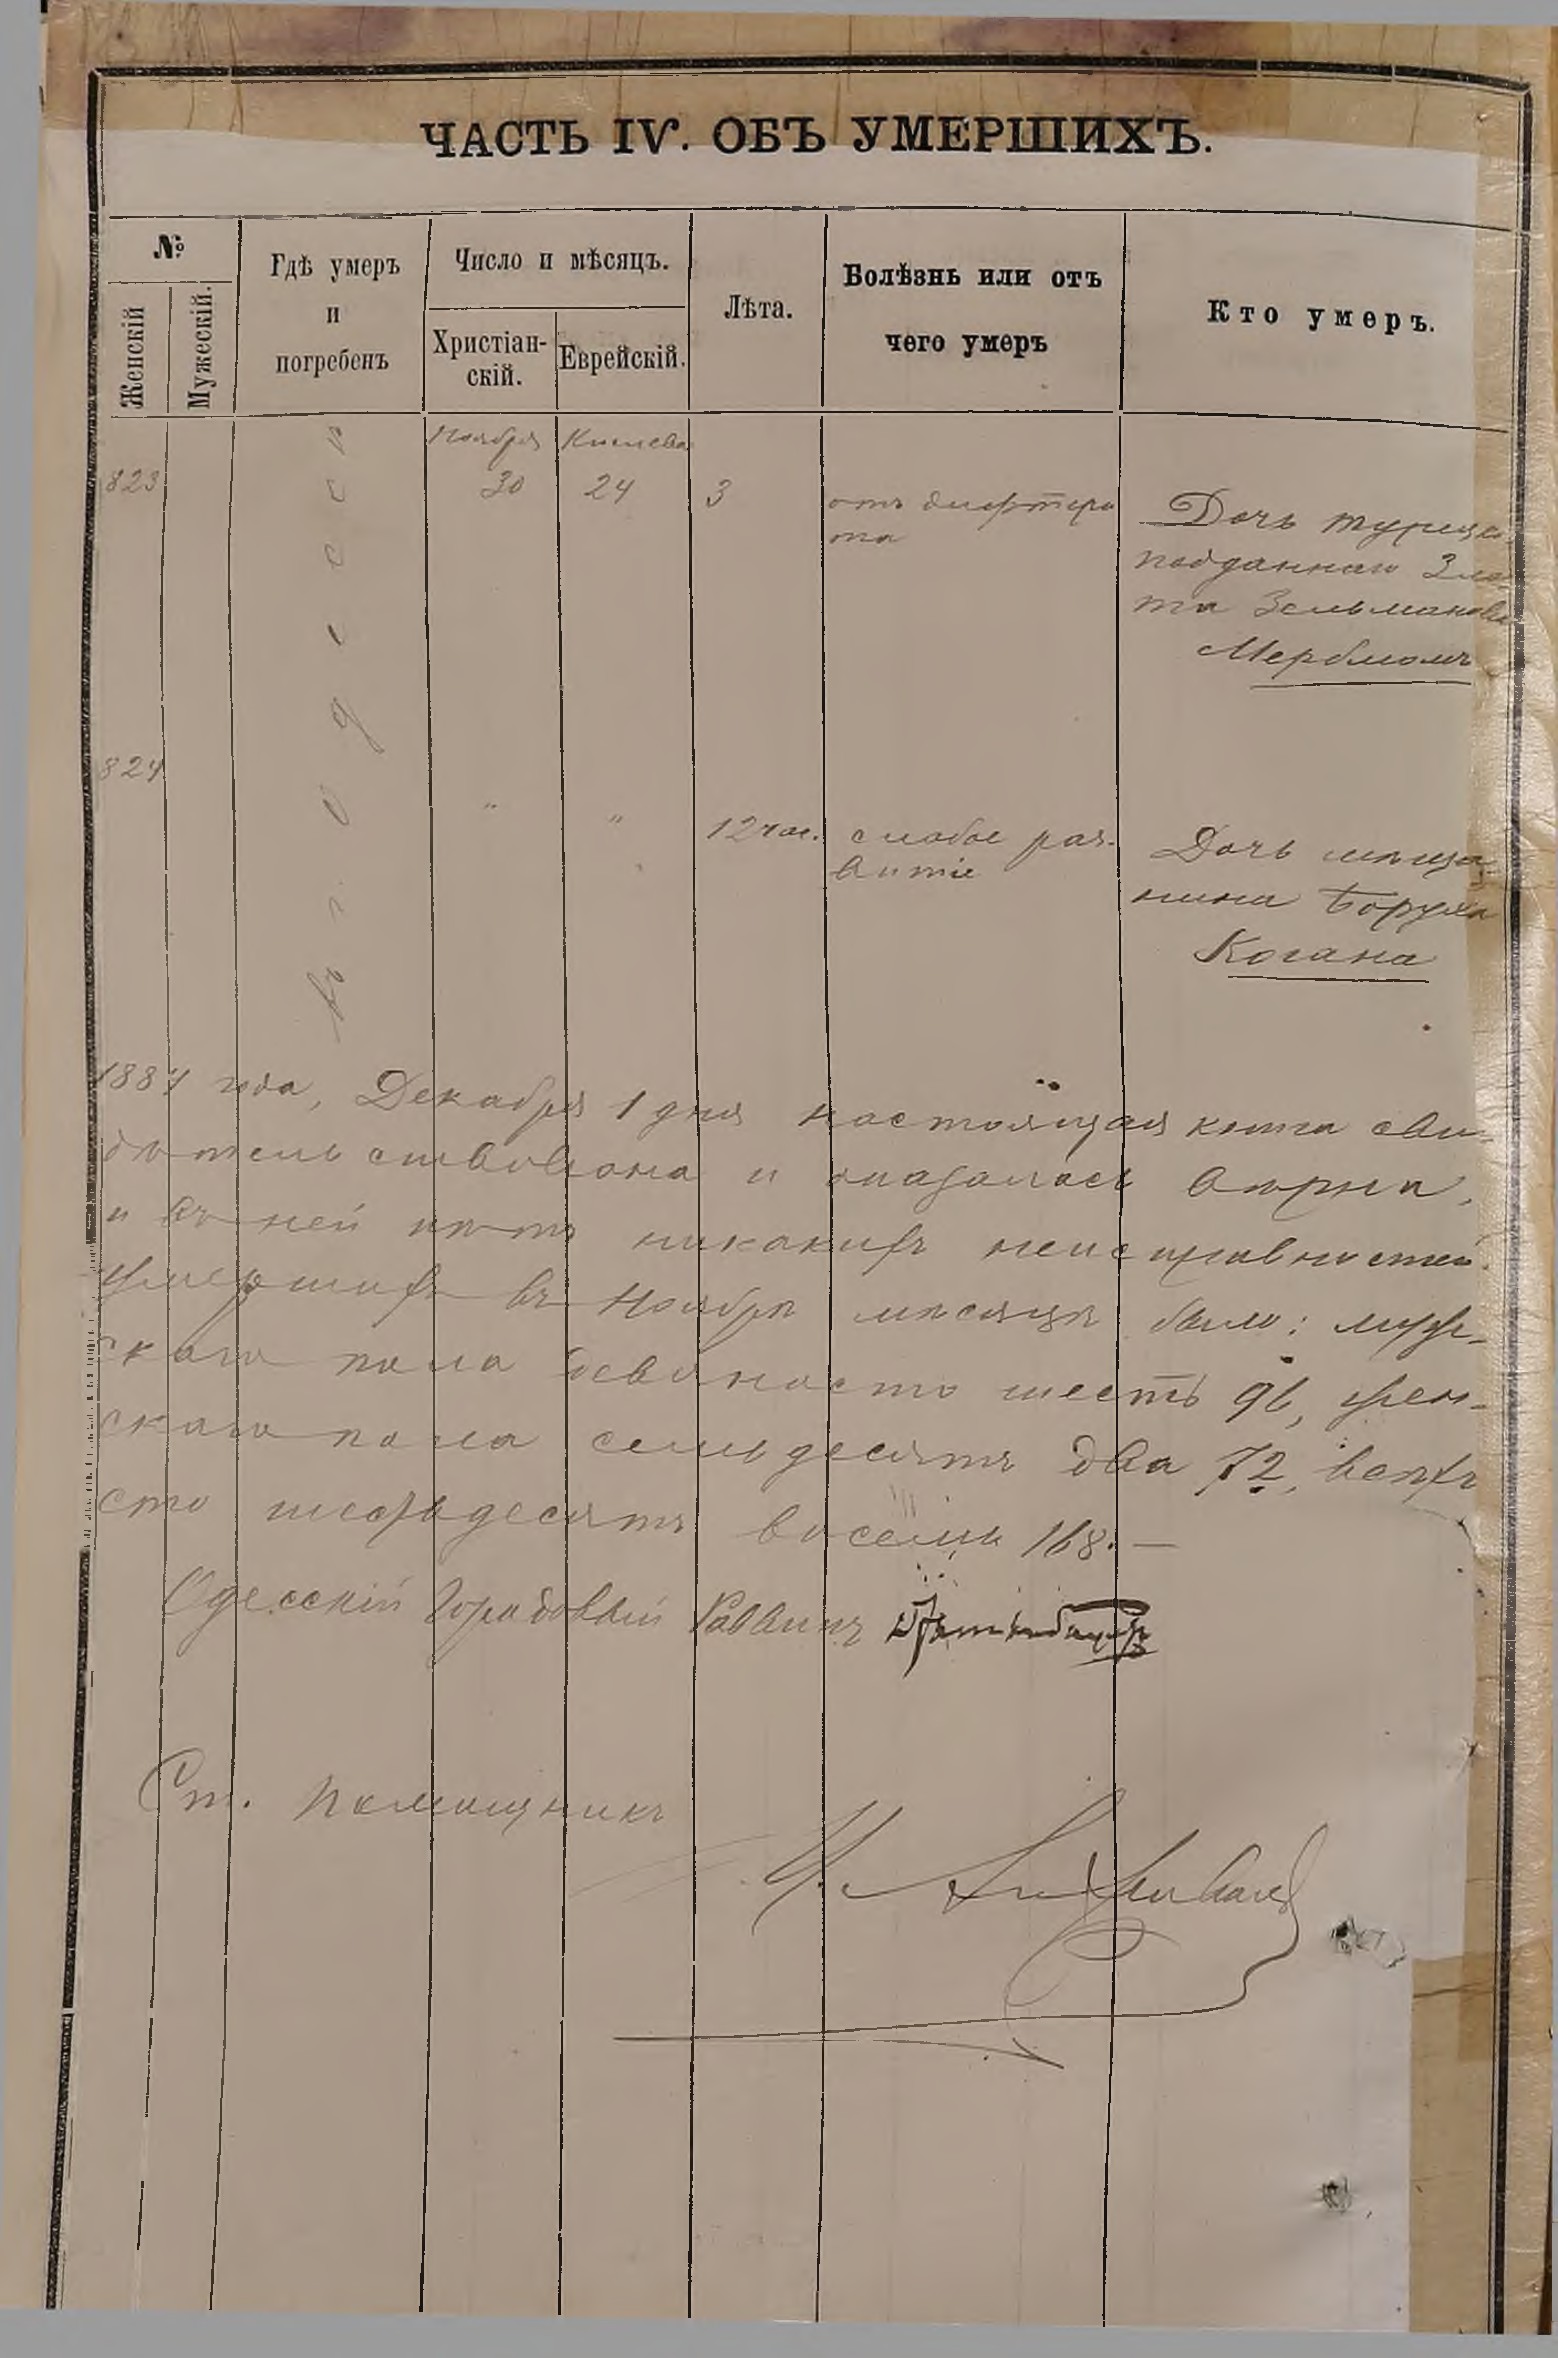 ЧАСТЬ IV. ОБЪ УМЕРШИХЪ.
№
Женскій
Мужескій.
Гдѣ умеръ
и
погребенъ
Число и мѣсяцъ.
Христіан-
скій.
Еврейскій.
Лѣта.
Болѣзнь или отъ
чего умеръ
Кто умеръ.
въ г. Одессѣ
Ноября
Кислева
823
30
24
3
отъ дифтери
та
Дочь турецко
подданнаго Зла
та Зельманова
824
"
"
12 час.
слабое раз-
витіе
Дочь мѣща-
нина Боруха
Когана
1884 года, Декабря 1 дня настоящая книга сви-
дѣтельствована и оказалась вѣрна,
и въ ней нѣтъ никакихъ неисправностей.
Умершихъ въ Ноябрѣ мѣсяцѣ было: муж-
скаго пола девяносто шесть 96, жен-
скаго пола семьдесятъ два 72, всѣхъ
сто шестьдесятъ восемь 168. —
Одесскій Городовый Раввинъ
Ст. Помощникъ